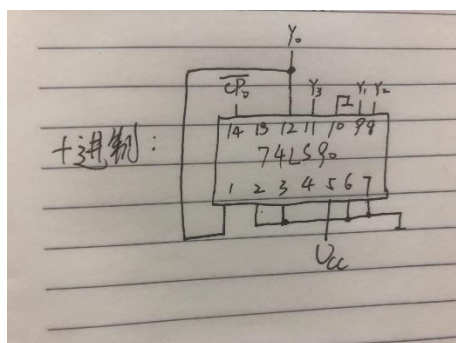 Y₀
C̅P̅₀ Y₃ Y₁ Y₂
14 13 12 11 10 9 8
十进制:
74LS90
1 2 3 4 5 6 7
Ucc